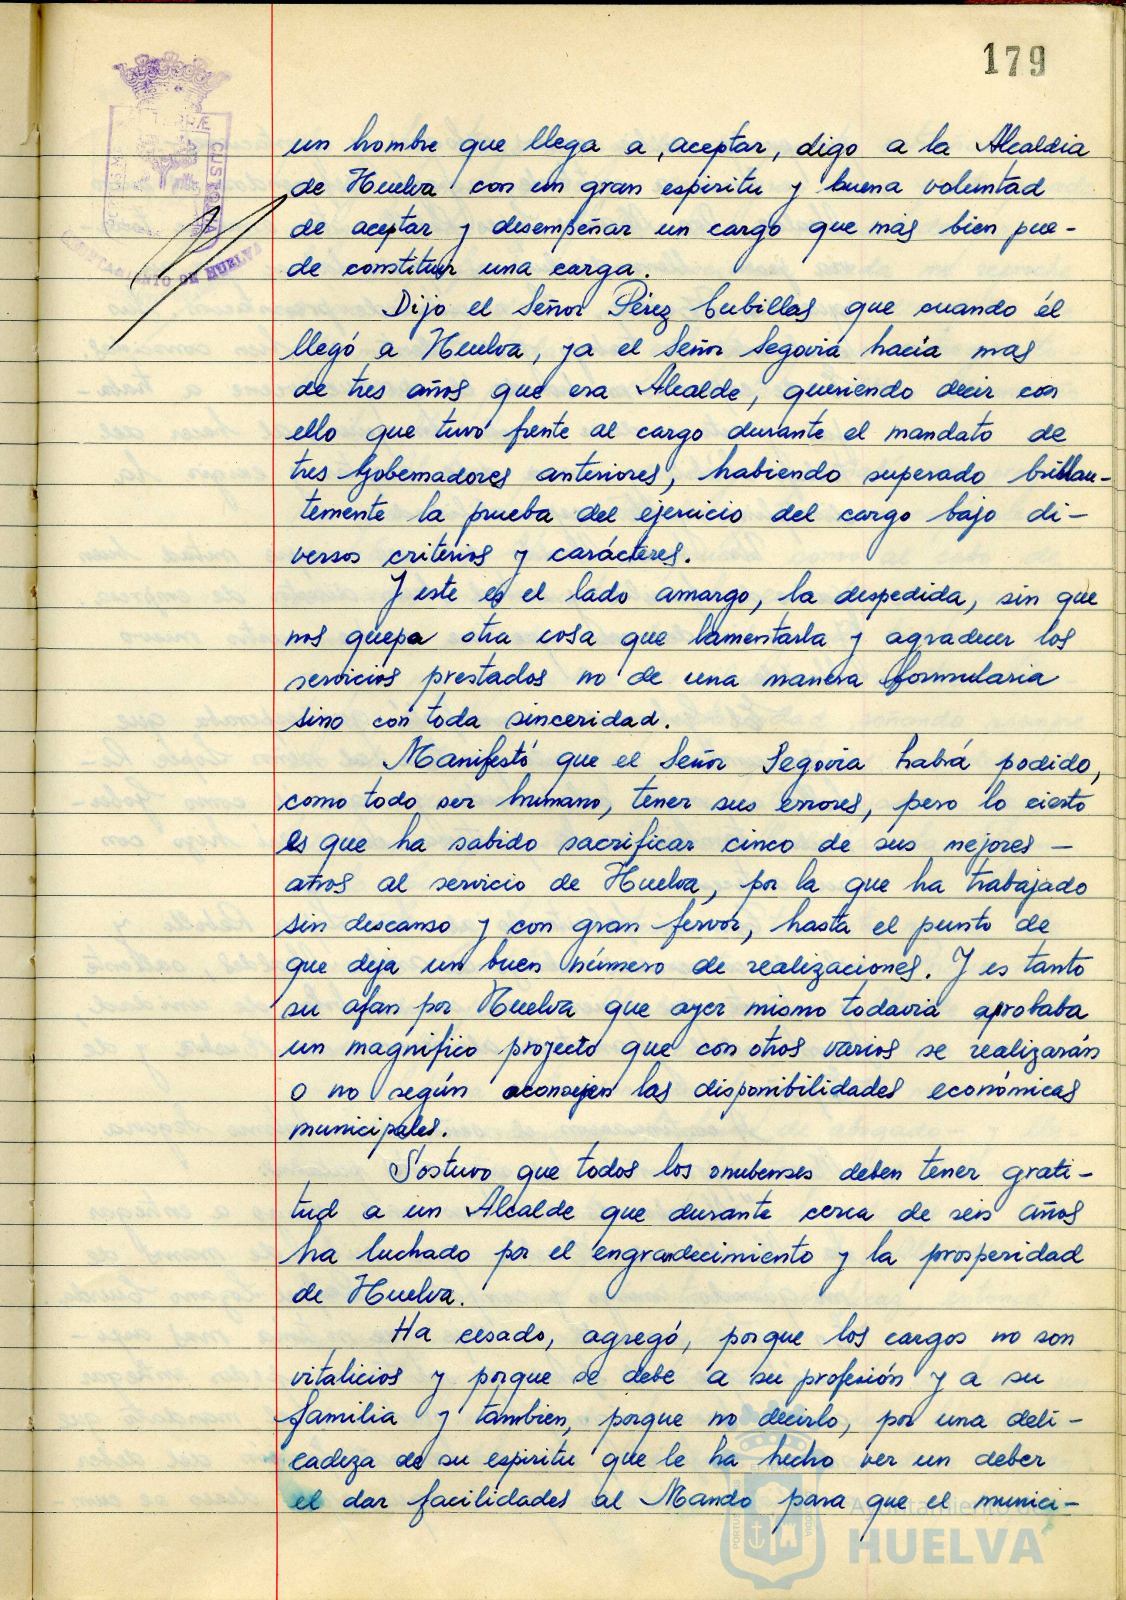 179
un hombre que llega a, aceptar, digo a la Alcaldia
de Huelva con un gran espiritu y buena voluntad
de aceptar y desempeñar un cargo que más bien pue-
de constituir una carga.
Dijo el Señor Pérez Cubillas que cuando él
llegó a Huelva, ya el Señor Segovia hacía mas
de tres años que era Alcalde, queriendo decir con
ello que tuvo frente al cargo durante el mandato de
tres Gobernadores anteriores, habiendo superado brillan-
temente la prueba del ejercicio del cargo bajo di-
versos criterios y carácteres.
Y este es el lado amargo, la despedida, sin que
nos quepa otra cosa que lamentarla y agradecer los
servicios prestados no de una manera formularia
sino con toda sinceridad.
Manifestó que el Señor Segovia habrá podido,
como todo ser humano, tener sus errores, pero lo cierto
es que ha sabido sacrificar cinco de sus mejores -
años al servicio de Huelva, por la que ha trabajado
sin descanso y con gran fervor, hasta el punto de
que deja un buen número de realizaciones. Y es tanto
su afan por Huelva que ayer mismo todavia aprobaba
un magnifico proyecto que con otros varios se realizarán
o no según aconsejen las disponibilidades económicas
municipales.
Sostuvo que todos los onubenses deben tener grati-
tud a un Alcalde que durante cerca de seis años
ha luchado por el engrandecimiento y la prosperidad
de Huelva.
Ha cesado, agregó, porque los cargos no son
vitalicios y porque se debe a su profesión y a su
familia y tambien, porque no decirlo, por una deli-
cadeza de su espiritu que le ha hecho ver un deber
el dar facilidades al Mando para que el munici-
CUSTODIA
AYUNTAMIENTO DE HUELVA
Ayuntamiento de
HUELVA